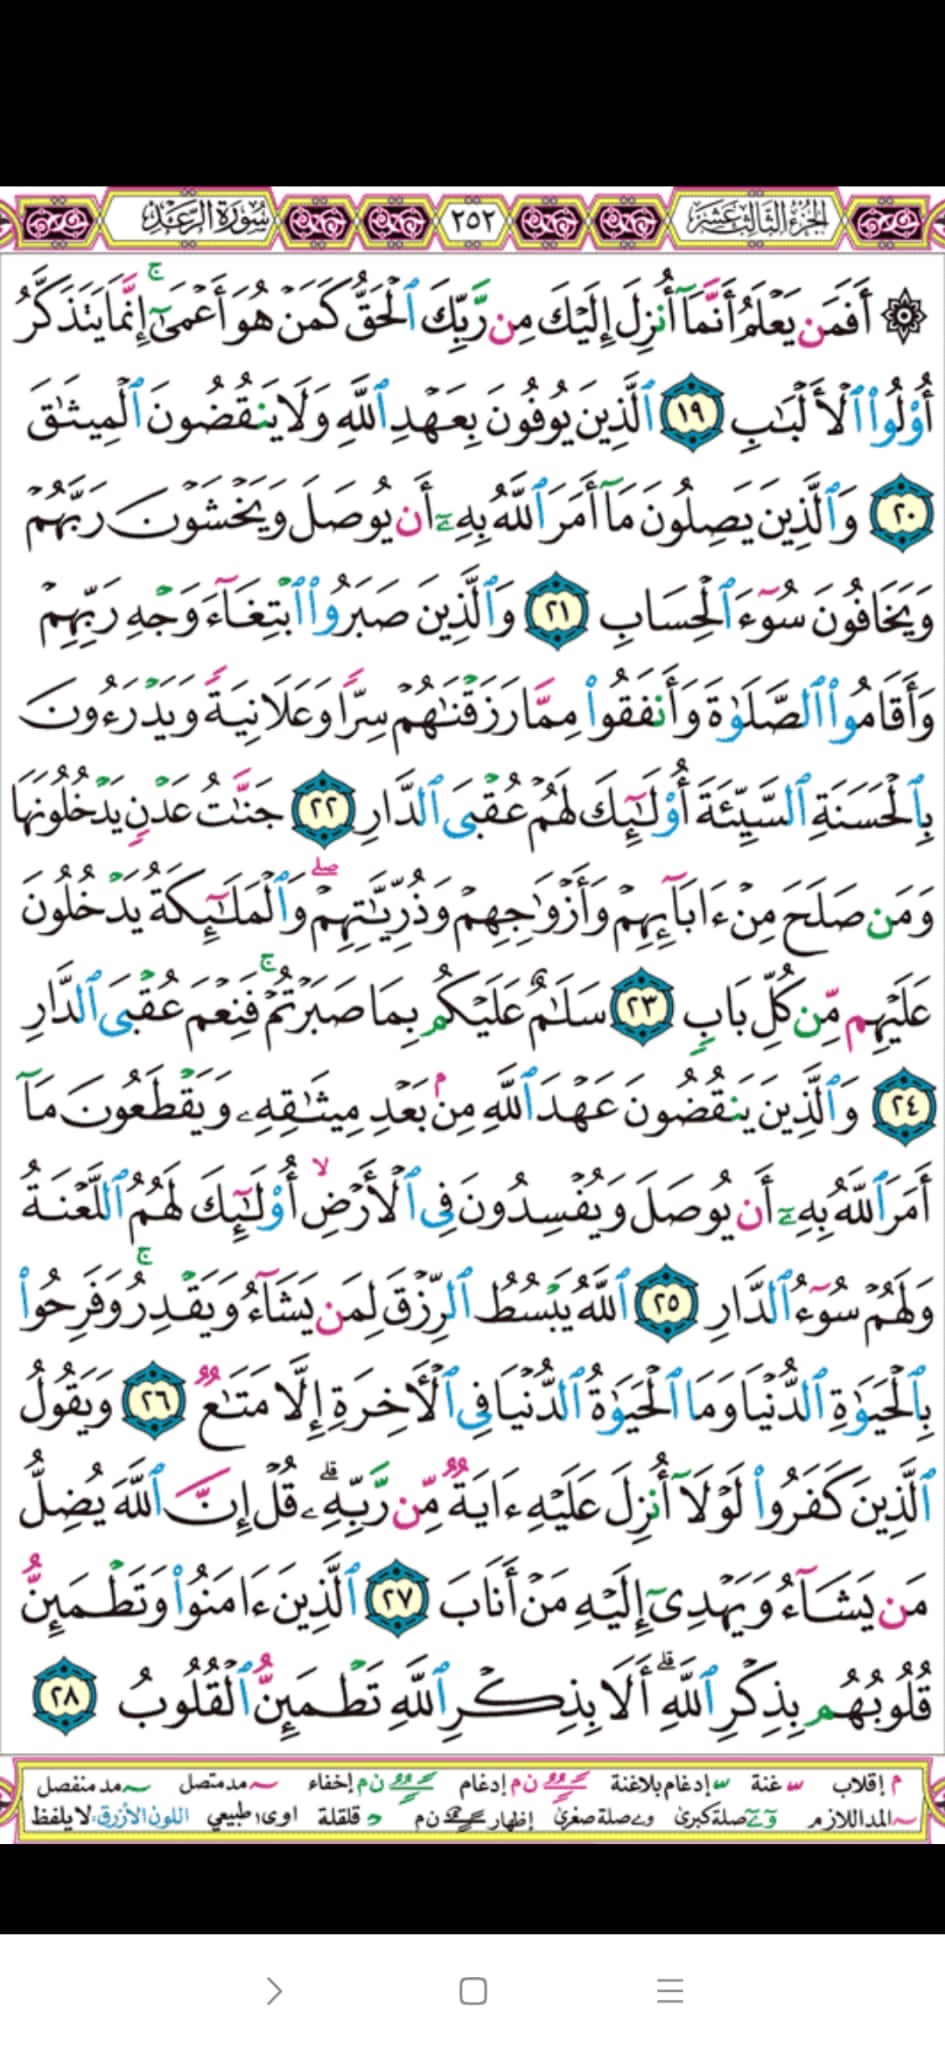 الجزء الثالث عشر ٢٥٢ سورة الرعد
۞ أَفَمَن يَعۡلَمُ أَنَّمَآ أُنزِلَ إِلَيۡكَ مِن رَّبِّكَ ٱلۡحَقُّ كَمَنۡ هُوَ أَعۡمَىٰٓۚ إِنَّمَا يَتَذَكَّرُ
أُوْلُواْ ٱلۡأَلۡبَٰبِ ١٩ ٱلَّذِينَ يُوفُونَ بِعَهۡدِ ٱللَّهِ وَلَا يَنقُضُونَ ٱلۡمِيثَٰقَ
٢٠ وَٱلَّذِينَ يَصِلُونَ مَآ أَمَرَ ٱللَّهُ بِهِۦٓ أَن يُوصَلَ وَيَخۡشَوۡنَ رَبَّهُمۡ
وَيَخَافُونَ سُوٓءَ ٱلۡحِسَابِ ٢١ وَٱلَّذِينَ صَبَرُواْ ٱبۡتِغَآءَ وَجۡهِ رَبِّهِمۡ
وَأَقَامُواْ ٱلصَّلَوٰةَ وَأَنفَقُواْ مِمَّا رَزَقۡنَٰهُمۡ سِرّٗا وَعَلَانِيَةٗ وَيَدۡرَءُونَ
بِٱلۡحَسَنَةِ ٱلسَّيِّئَةَ أُوْلَٰٓئِكَ لَهُمۡ عُقۡبَى ٱلدَّارِ ٢٢ جَنَّٰتُ عَدۡنٖ يَدۡخُلُونَهَا
وَمَن صَلَحَ مِنۡ ءَابَآئِهِمۡ وَأَزۡوَٰجِهِمۡ وَذُرِّيَّٰتِهِمۡۖ وَٱلۡمَلَٰٓئِكَةُ يَدۡخُلُونَ
عَلَيۡهِم مِّن كُلِّ بَابٖ ٢٣ سَلَٰمٌ عَلَيۡكُم بِمَا صَبَرۡتُمۡۚ فَنِعۡمَ عُقۡبَى ٱلدَّارِ
٢٤ وَٱلَّذِينَ يَنقُضُونَ عَهۡدَ ٱللَّهِ مِنۢ بَعۡدِ مِيثَٰقِهِۦ وَيَقۡطَعُونَ مَآ
أَمَرَ ٱللَّهُ بِهِۦٓ أَن يُوصَلَ وَيُفۡسِدُونَ فِي ٱلۡأَرۡضِۙ أُوْلَٰٓئِكَ لَهُمُ ٱللَّعۡنَةُ
وَلَهُمۡ سُوٓءُ ٱلدَّارِ ٢٥ ٱللَّهُ يَبۡسُطُ ٱلرِّزۡقَ لِمَن يَشَآءُ وَيَقۡدِرُۚ وَفَرِحُواْ
بِٱلۡحَيَوٰةِ ٱلدُّنۡيَا وَمَا ٱلۡحَيَوٰةُ ٱلدُّنۡيَا فِي ٱلۡأٓخِرَةِ إِلَّا مَتَٰعٞ ٢٦ وَيَقُولُ
ٱلَّذِينَ كَفَرُواْ لَوۡلَآ أُنزِلَ عَلَيۡهِ ءَايَةٞ مِّن رَّبِّهِۦۗ قُلۡ إِنَّ ٱللَّهَ يُضِلُّ
مَن يَشَآءُ وَيَهۡدِيٓ إِلَيۡهِ مَنۡ أَنَابَ ٢٧ ٱلَّذِينَ ءَامَنُواْ وَتَطۡمَئِنُّ
قُلُوبُهُم بِذِكۡرِ ٱللَّهِۗ أَلَا بِذِكۡرِ ٱللَّهِ تَطۡمَئِنُّ ٱلۡقُلُوبُ ٢٨
م إقلاب غنة إدغام بلاغنة ن م إدغام ن م إخفاء مد متصل مد منفصل
المد اللازم صلة كبرى صلة صغرى إظهار ن م قلقلة اوى طبيعي اللون الأزرق: لا يلفظ